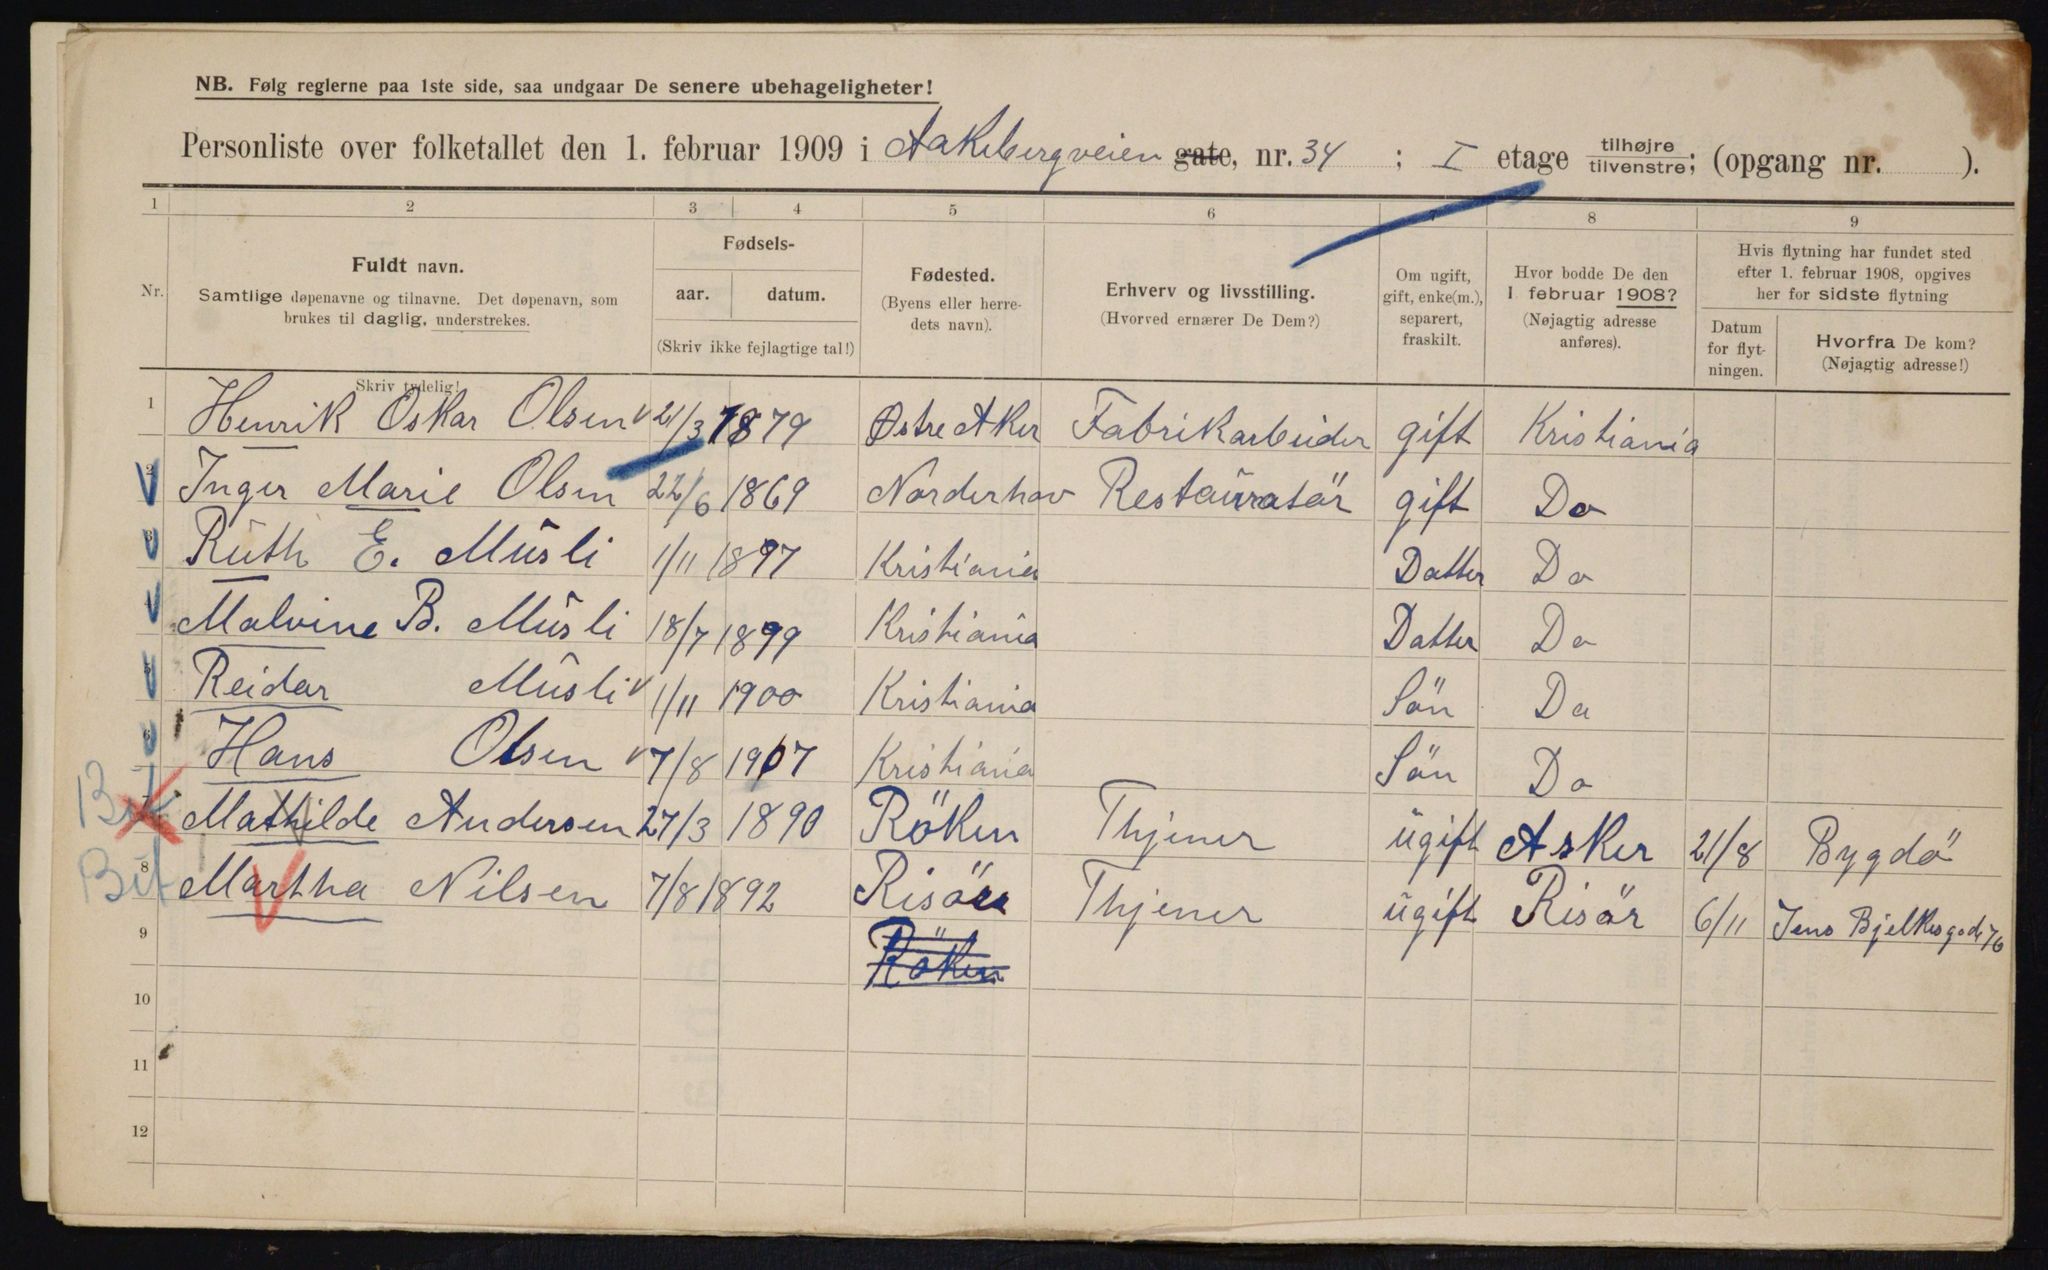 NB. Følg reglerne paa 1ste side, saa undgaar De senere ubehageligheter!
Personliste over folketallet den 1. februar 1909 i Aakebergveien gate, nr. 34 ; I etage tilhøjre tilvenstre; (opgang nr. ).
1 2 3 4 5 6 7 8 9
Nr.
Fuldt navn.
Samtlige døpenavne og tilnavne. Det døpenavn, som
brukes til daglig, understrekes.
Skriv tydelig!
Fødsels-
aar. datum.
(Skriv ikke fejlagtige tal!)
Fødested.
(Byens eller herre-
dets navn).
Erhverv og livsstilling.
(Hvorved ernærer De Dem?)
Om ugift,
gift, enke(m.),
separert,
fraskilt.
Hvor bodde De den
1 februar 1908?
(Nøjagtig adresse
anføres).
Hvis flytning har fundet sted
efter 1. februar 1908, opgives
her for sidste flytning
Datum
for flyt-
ningen.
Hvorfra De kom?
(Nøjagtig adresse!)
1 Henrik Oskar Olsen 21/3 1879 Østre Aker Fabrikarbeider gift Kristiania
2 Inger Marie Olsen 22/6 1869 Norderhov Restauratör gift Do
3 Ruth E. Musli 1/11 1897 Kristiania Datter Do
4 Malvine B. Musli 18/7 1899 Kristiania Datter Do
5 Reidar Musli 1/11 1900 Kristiania Sön Do
6 Hans Olsen 7/8 1907 Kristiania Sön Do
7 Mathilde Andersen 27/3 1890 Röken Thjener ugift Asker 21/8 Bygdö
8 Martha Nilsen 7/8 1892 Risör Thjener ugift Risör 6/11 Jens Bjelkesgade 76
9 Röken
10
11
12